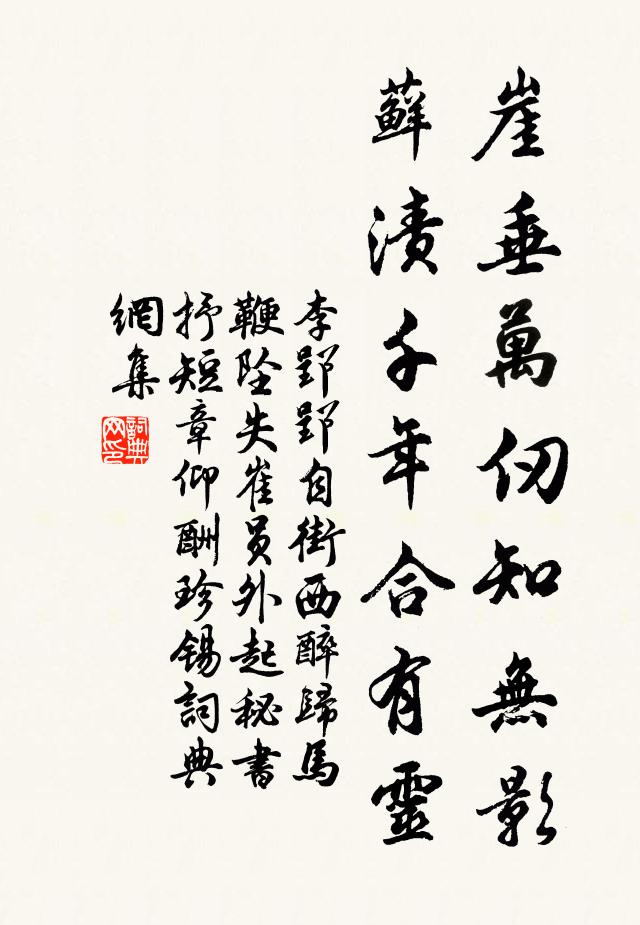 崖垂萬仞知無影
蘚漬千年合有靈
李郢郢自街西醉歸馬
鞭墜失崔員外起秘書
抒短章仰酬珍錫詞典
網集
詞典網印